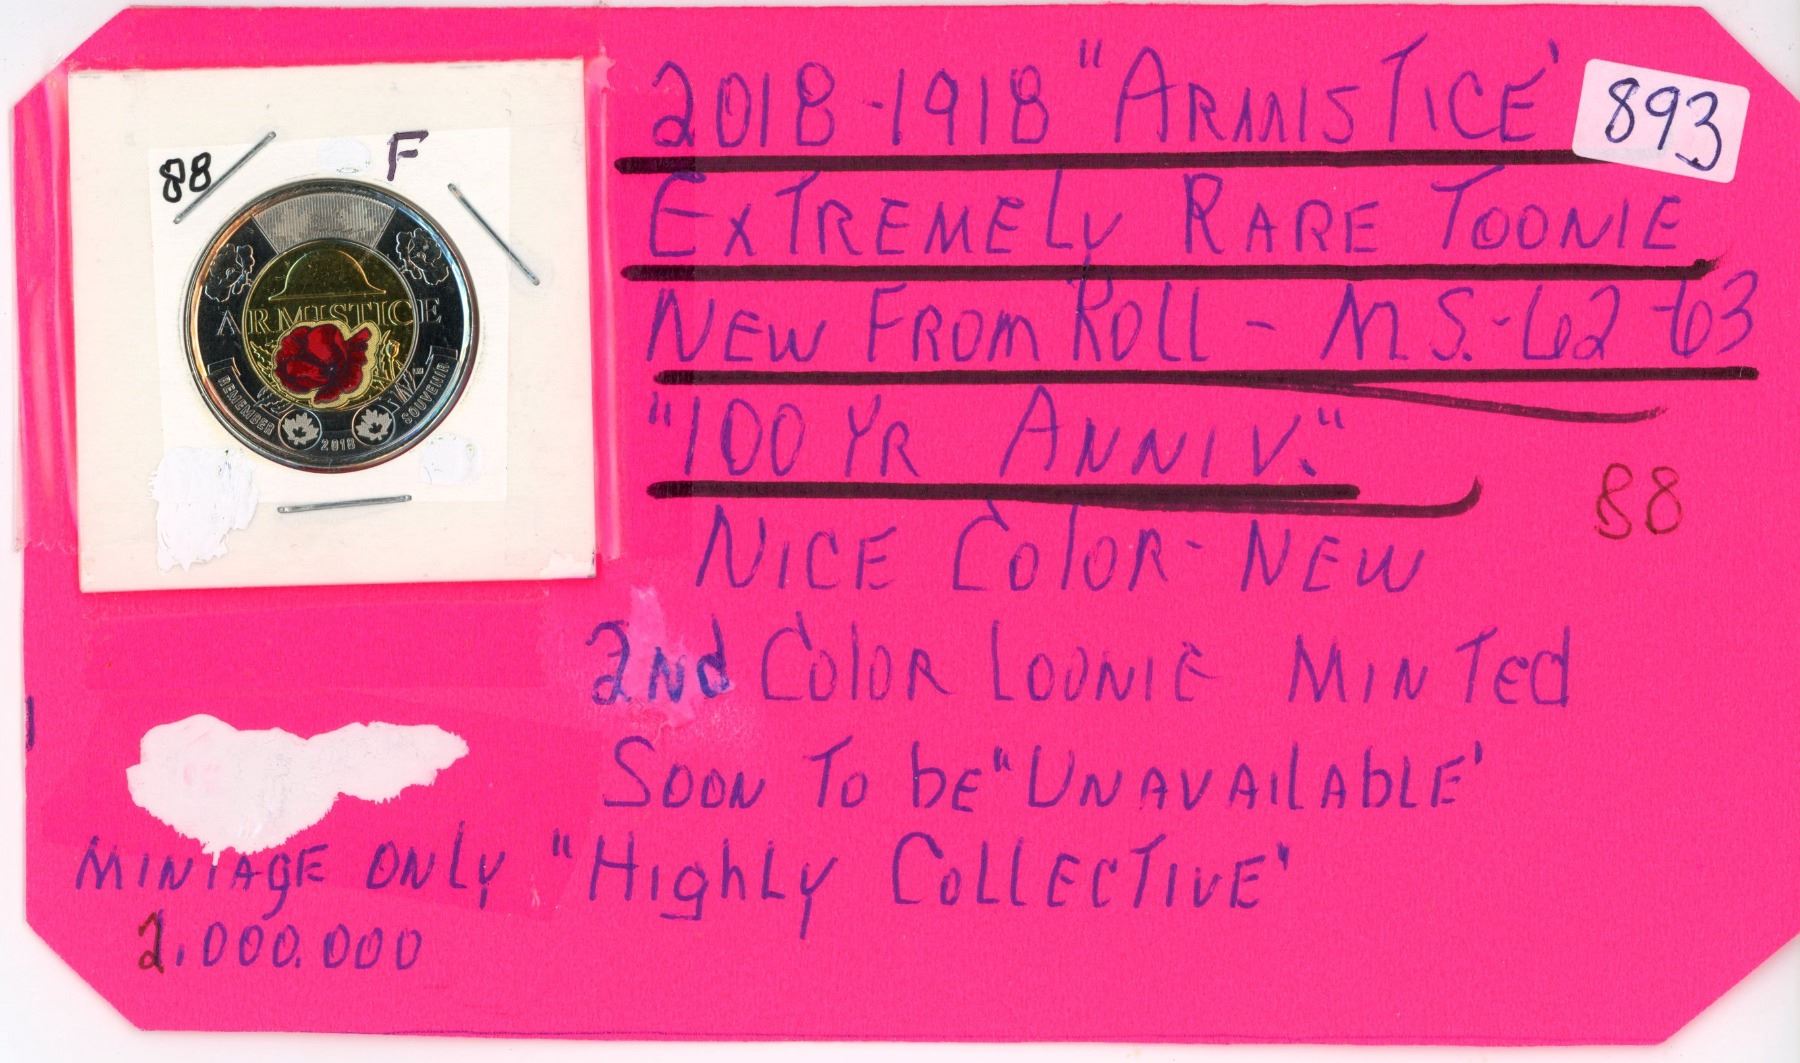 2018-1918 "ARMISTICE'
893
EXTREMELY RARE TOONIE
NEW FROM ROLL - M.S.-62-63
"100 YR ANNIV."
88
NICE COLOR- NEW
2Nd COLOR LOONIE MINTed
SOON TO bE "UNAVAILABLE'
MINTAGE ONLY "HIGHLY COLLECTIVE'
2,000.000
88
F
ARMISTICE
REMEMBER
2018
SOUVENIR